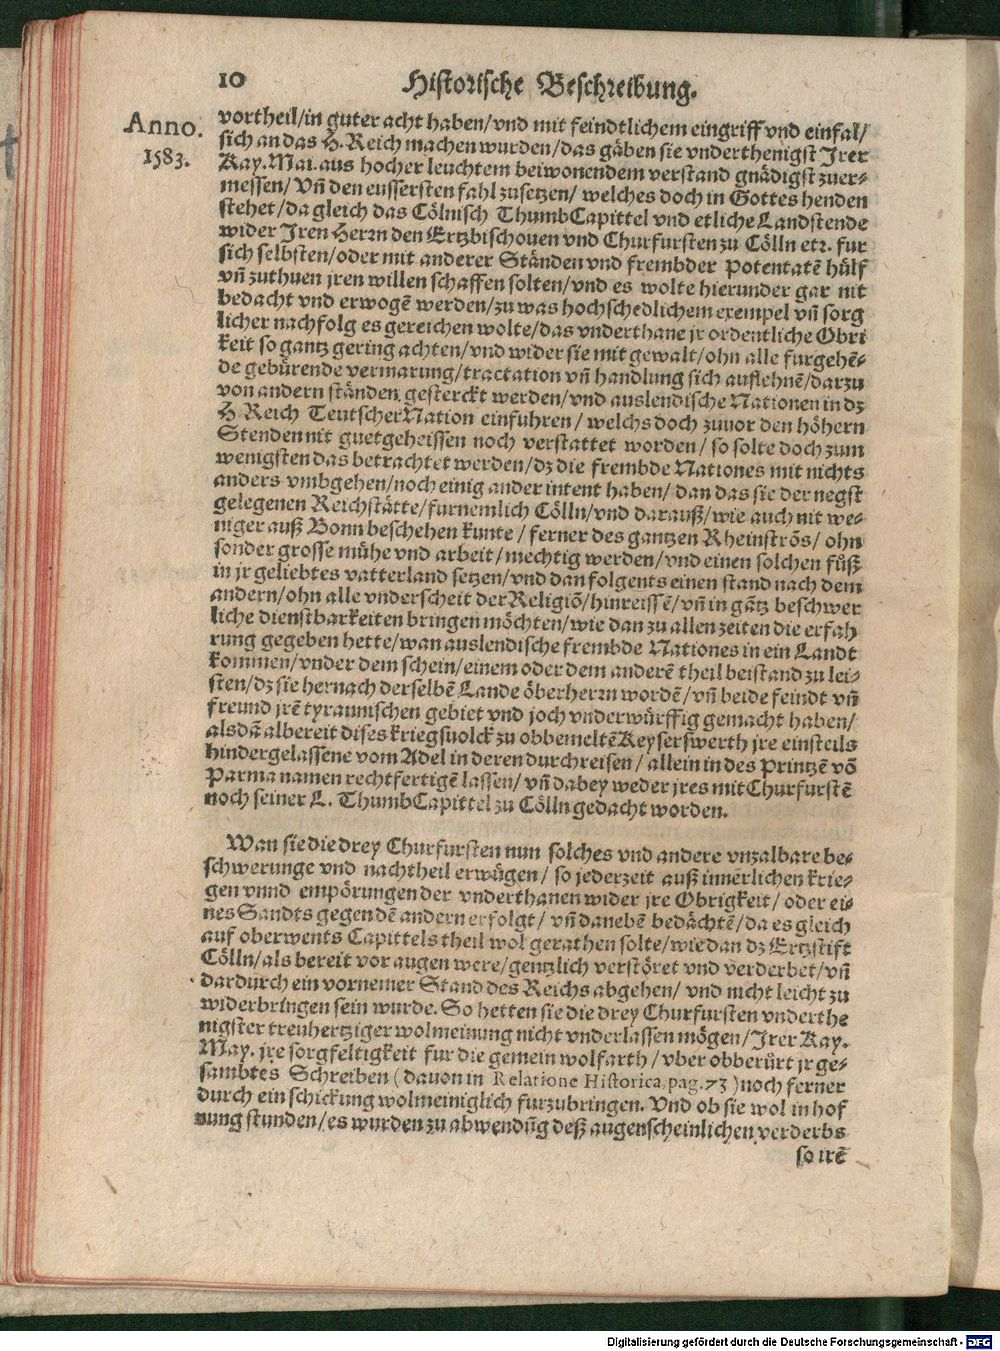 10 Historische Beschreibung.
Anno.
1583.
vortheil/in guter acht haben/vnd mit feindtlichem eingriff vnd einfal/
sich an das H. Reich machen wurden/das gäben sie vnderthenigst Irer
Kay. Mai. aus hocher leuchtem beiwonendem verstand gnädigst zuer-
messen/ Vñ den eussersten fahl zusetzen/ welches doch in Gottes henden
stehet/da gleich das Cölnisch ThumbCapittel vnd etliche Landstende
wider Iren Herrn den Ertzbischouen vnd Churfursten zu Cölln etz. fur
sich selbsten/oder mit anderer Ständen vnd frembder Potentatē hülf
vñ zuthuen jren willen schaffen solten/vnd es wolte hierunder gar nit
bedacht vnd erwogē werden/zu was hochschedlichem exempel vñ sorg
licher nachfolg es gereichen wolte/das vnderthane jr ordentliche Obri
keit so gantz gering achten/vnd wider sie mit gewalt/ohn alle furgehē-
de gebürende vermarung/tractation vñ handlung sich auflehnē/darzu
von andern ständen gesterckt werden/vnd auslendische Nationen in dz
H. Reich Teutscher Nation einfuhren/ welchs doch zuuor den höhern
Stenden nit guetgeheissen noch verstattet worden/ so solte doch zum
wenigsten das betrachtet werden/dz die frembde Nationes mit nichts
anders vmbgehen/noch einig ander intent haben/ dan das sie der negst
gelegenen Reichstätte/furnemlich Cölln/vnd darauß/wie auch nit we-
niger auß Bonn beschehen kunte/ ferner des gantzen Rheinströs/ ohn
sonder grosse mühe vnd arbeit/mechtig werden/vnd einen solchen fůß
in jr geliebtes vatterland setzen/vnd dan folgents einen stand nach dem
andern/ohn alle vnderscheit der Religiō/hinreissē/vñ in gātz beschwer
liche dienstbarkeiten bringen möchten/wie dan zu allen zeiten die erfah
rung gegeben hette/wan auslendische frembde Nationes in ein Landt
kommen/vnder dem schein/einem oder dem anderē theil beistand zu lei-
sten/dz sie hernach derselbē Lande öberherrn wordē/vñ beide feindt vñ
freund jrē tyrannischen gebiet vnd joch vnderwürffig gemacht haben/
alsdā albereit dises kriegsuolck zu obbemeltē Keyserswerth jre einsteils
hindergelassene vom Adel in deren durchreisen/ allein in des Printzē vō
Parma namen rechtfertigē lassen/ vñ dabey weder jres mit Churfurstē
noch seiner L. ThumbCapittel zu Cölln gedacht worden.
Wan sie die drey Churfursten nun solches vnd andere vnzalbare be-
schwerunge vnd nachtheil erwügen/ so jederzeit auß innerlichen krie-
gen vnnd empörungen der vnderthanen wider jre Obrigkeit/ oder ei-
nes Sandts gegen dē andern erfolgt/ vñ danebē bedächtē/da es gleich
auf oberwents Capittels theil wol gerathen solte/wie dan dz Ertzstift
Cölln/als bereit vor augen were/gentzlich verstöret vnd verderbet/vñ
dardurch ein vornemer Stand des Reichs abgehen/ vnd nicht leicht zu
widerbringen sein wurde. So hetten sie die drey Churfursten vnderthe
nigster treuhertziger wolmeinung nicht vnderlassen mögen/Irer Kay.
May. jre sorgfeltigkeit fur die gemein wolfarth/ vber obberůrt jr ge-
sambtes Schreiben (dauon in Relatione Historica, pag. 73) noch ferner
durch ein schickung wolmeiniglich furzubringen. Vnd ob sie wol in hof
nung stunden/es wurden zu abwendūg deß augenscheinlichen verderbs
so irē
Digitalisierung gefördert durch die Deutsche Forschungsgemeinschaft - DFG